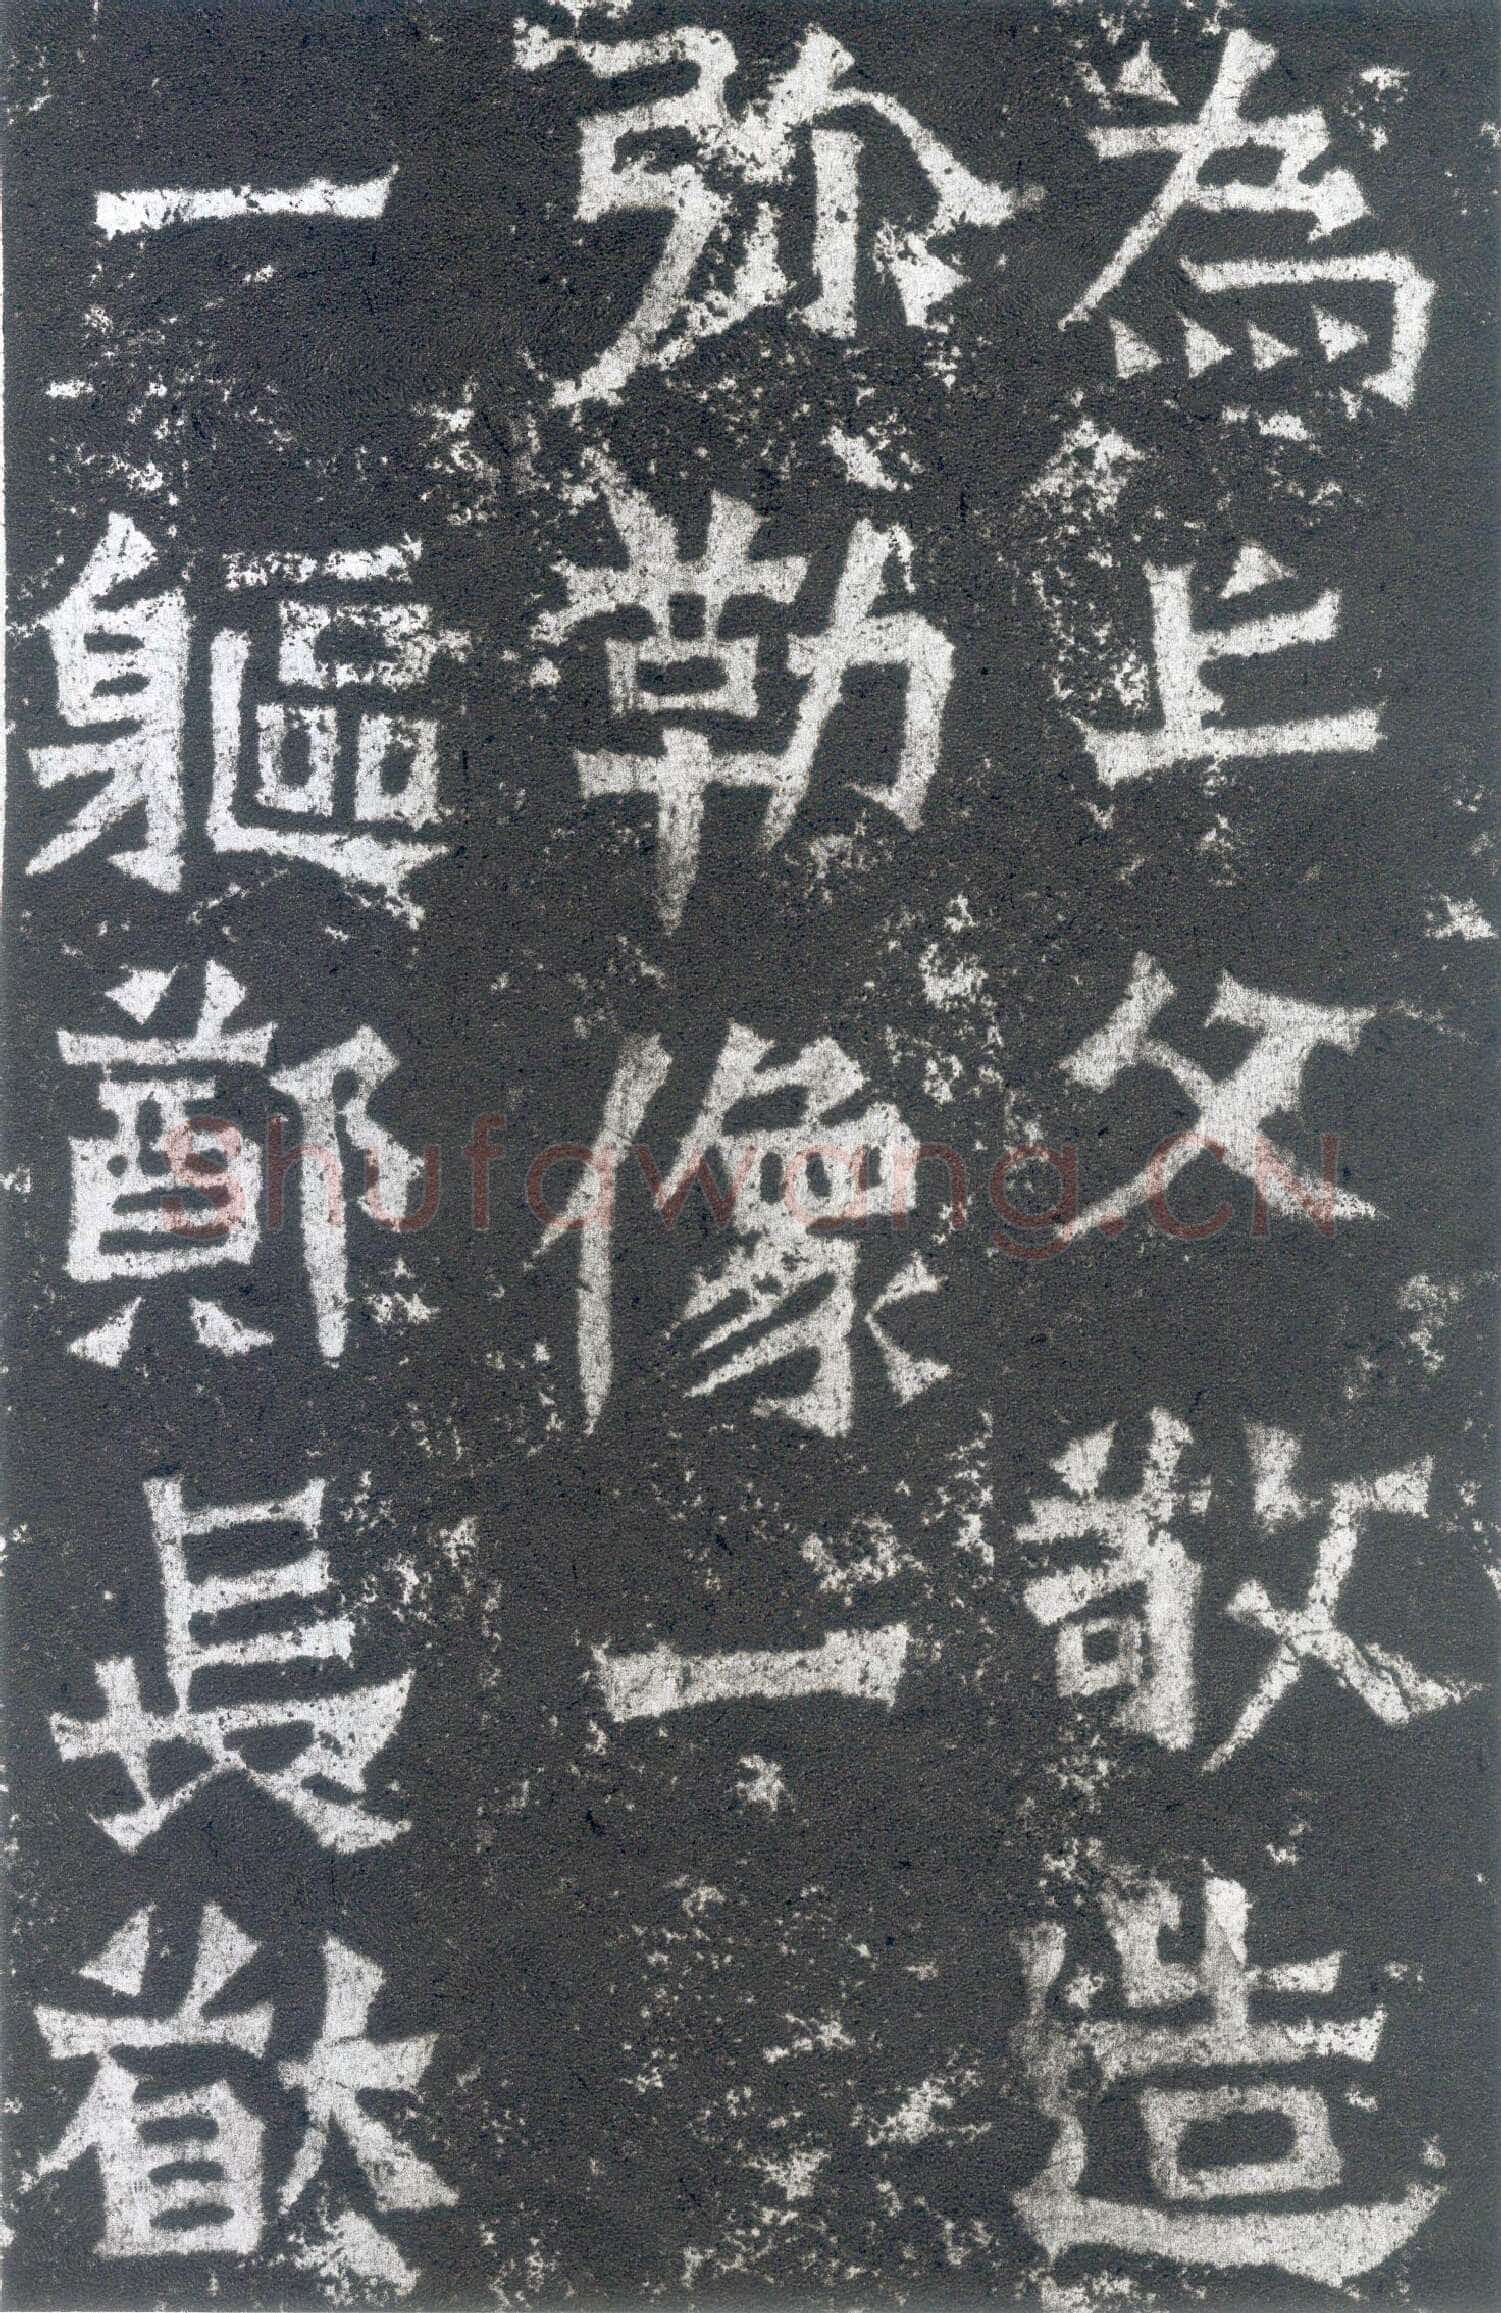 為亡父敬造
弥勒像一
一軀鄭長猷
Shufawang.CN